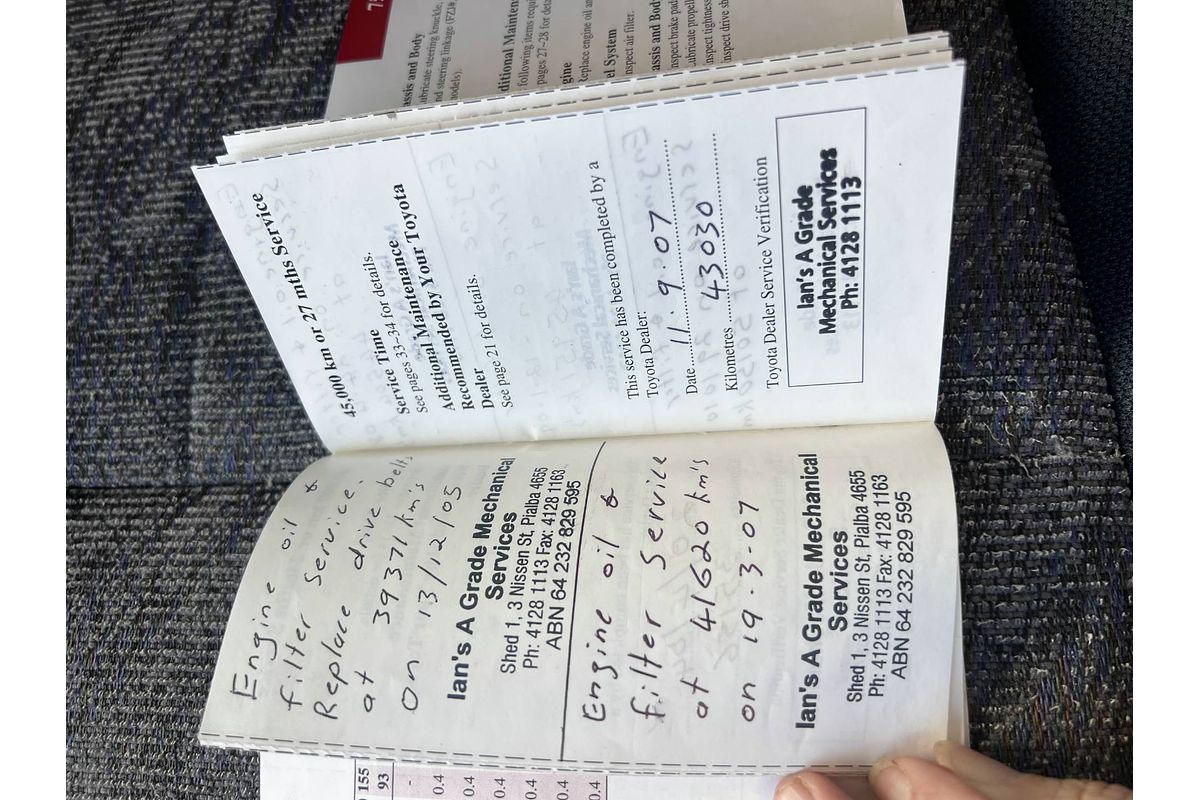 Engine oil &
filter service.
Replace drive belts
at 39371 km's
on 13/12/05
Ian's A Grade Mechanical
Services
Shed 1, 3 Nissen St, Pialba 4655
Ph: 4128 1113 Fax: 4128 1163
ABN 64 232 829 595
Engine oil &
filter service
at 41620 km's
on 19.3.07
Ian's A Grade Mechanical
Services
Shed 1, 3 Nissen St, Pialba 4655
Ph: 4128 1113 Fax: 4128 1163
ABN 64 232 829 595
45,000 km or 27 mths Service
Service Time
See pages 33~34 for details.
Additional Maintenance
Recommended by Your Toyota
Dealer
See page 21 for details.
This service has been completed by a
Toyota Dealer:
Date 11.9.07
Kilometres 43030
Toyota Dealer Service Verification
Ian's A Grade
Mechanical Services
Ph: 4128 1113
155
93
-
0.4
0.4
0.4
0.4
0.4
75
assis and Body
ubricate steering knuckle,
nd steering linkage
models).
ditional Mainten
following items requi
pages 27~28 for deta
gine
Replace engine oil an
el System
nspect air filter.
assis and Body
nspect brake pad
ubricate propell
nspect tightness
nspect drive sh